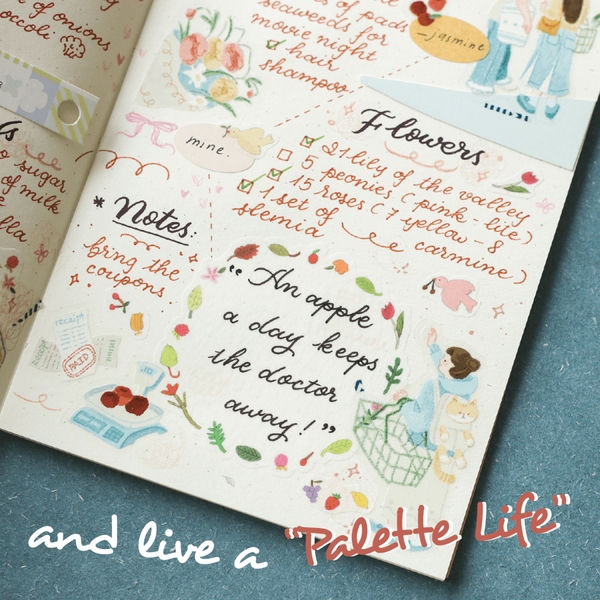 of onions
occoli
of pads
seaweeds for
movie night
hair
shampoo
jasmine
mine.
Flowers
21 lily of the valley
5 peonies (pink-lite)
15 roses (7 yellow-8
carmine)
1 set of
slemia
o sugar
of milk
* Notes:
bring the
coupons
receipt
PAID
"An apple
a day keeps
the doctor
away!"
and live a "Palette Life"